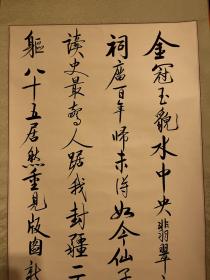 金冠玉貌水中央翡翠
祠廟百年歸未得如今仙子
讀史最驚人踞我封疆二
軀八十五居然重見版圖新